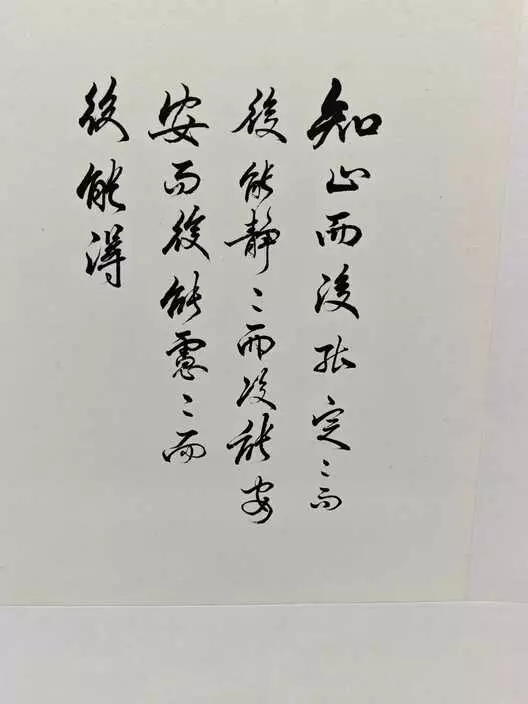 知止而後能定〻而
後能静〻而後能安
安而後能慮〻而
後能得